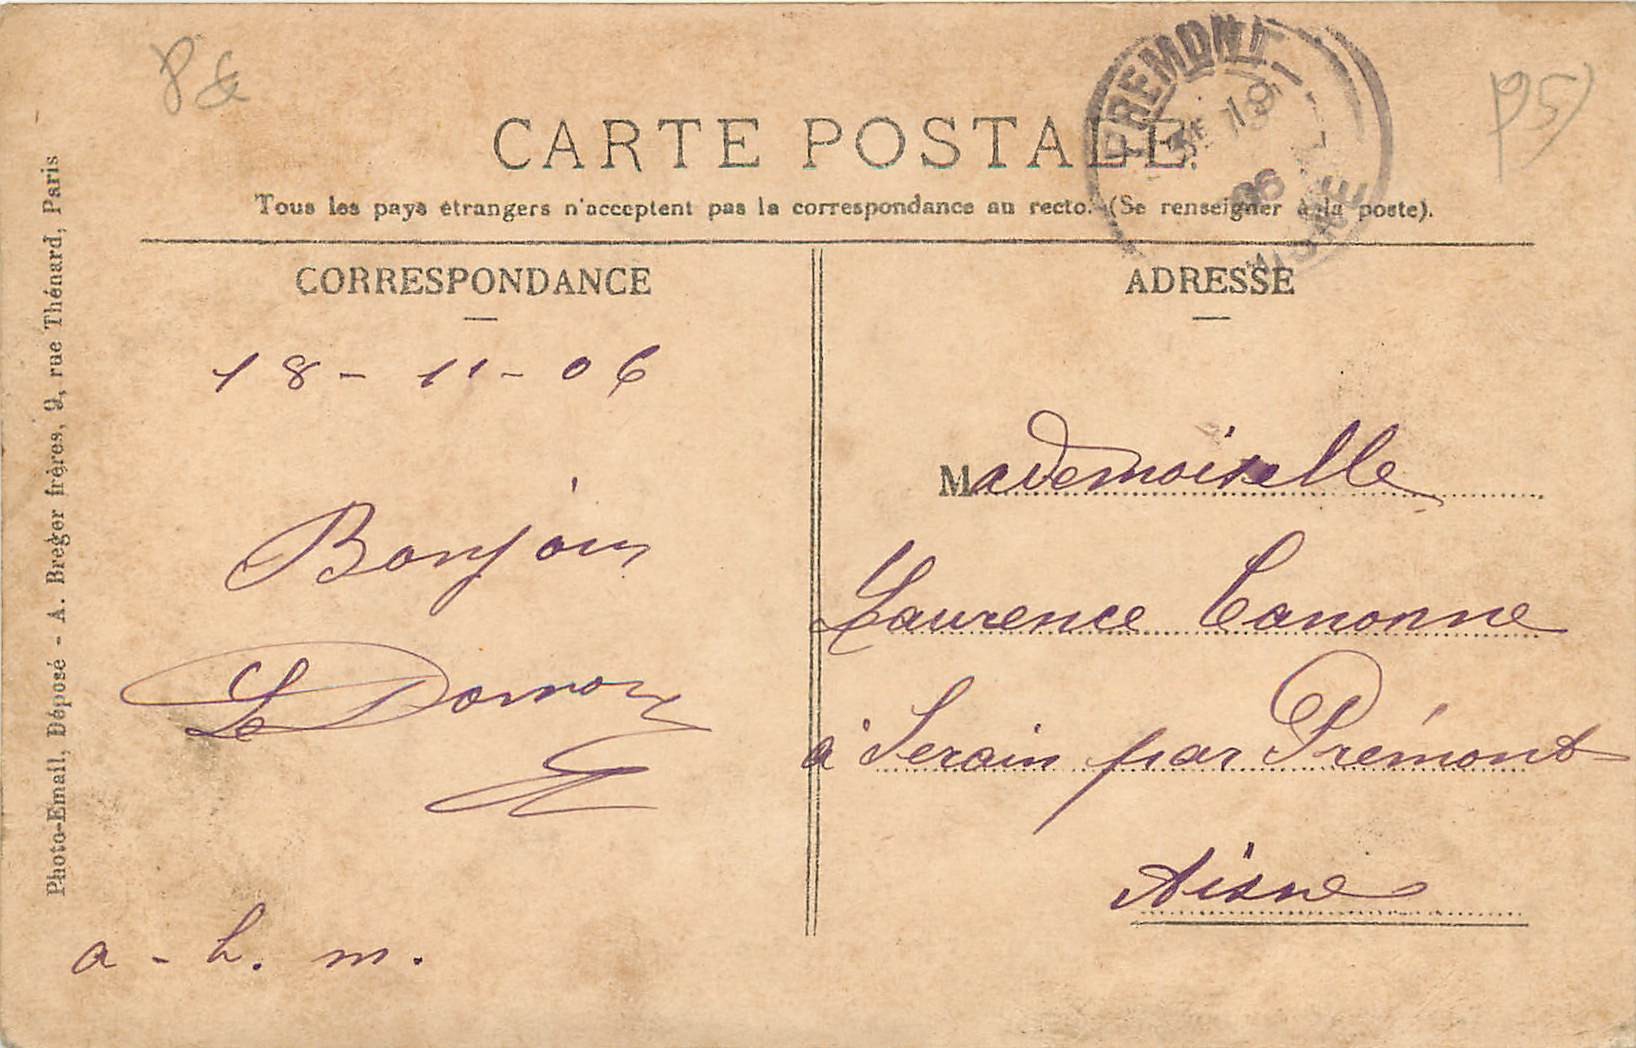 CARTE POSTALE.
Tous les pays étrangers n'acceptent pas la correspondance au recto. (Se renseigner à la poste).
CORRESPONDANCE
18 - 11 - 06
Bonjour
a - h. m.
ADRESSE
Mademoiselle
Laurence Canonne
à Serain par Prémont
Aisne
PREMONT
19
06
AISNE
Photo-Email, Déposé - A. Breger frères, 9, rue Thénard, Paris